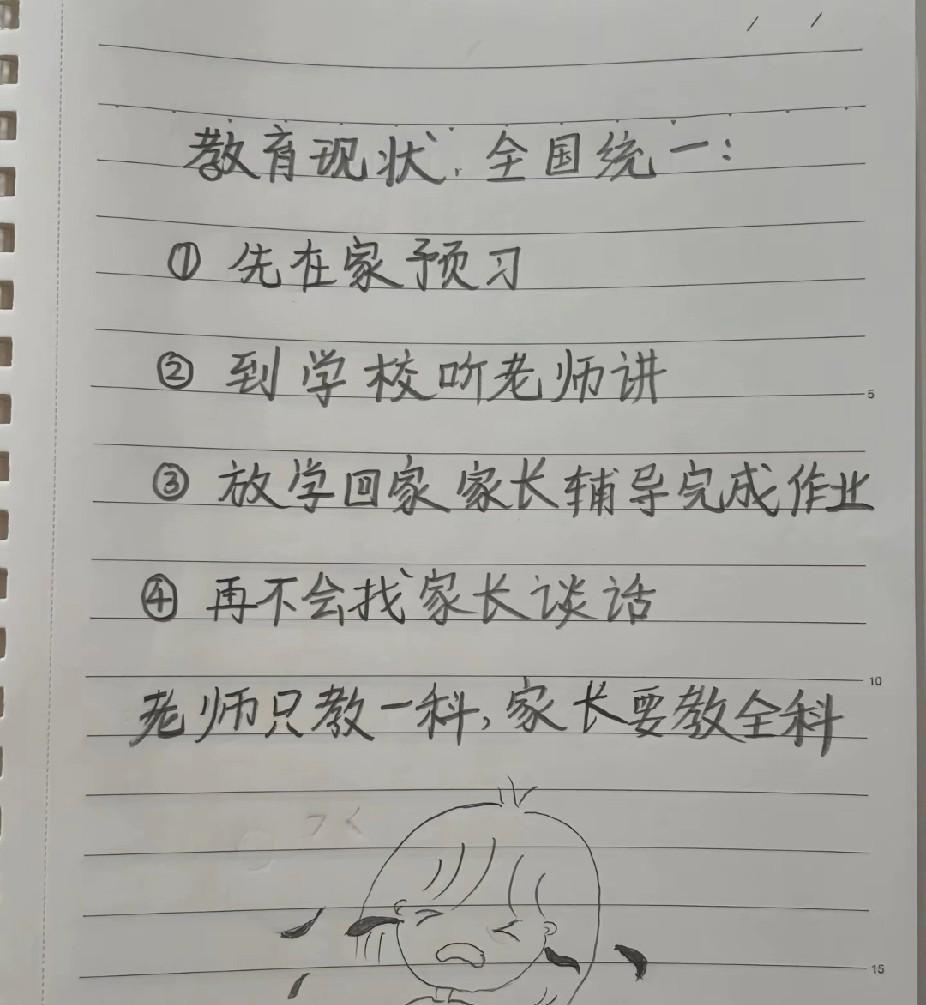 教育现状,全国统一:
① 先在家预习
② 到学校听老师讲
5
③ 放学回家家长辅导完成作业
④ 再不会找家长谈话
10
老师只教一科,家长要教全科
15